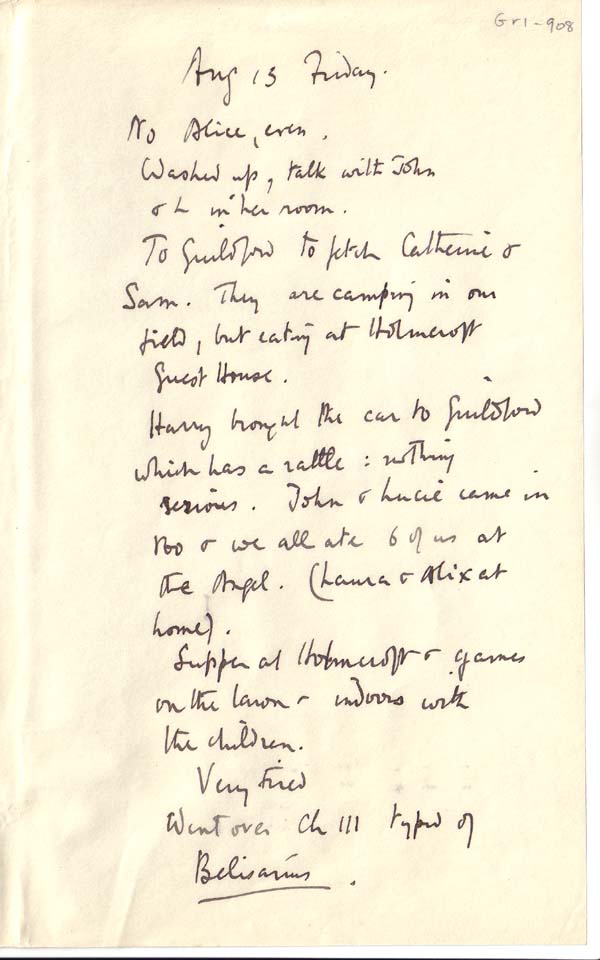 Gr1-908
Aug 13 Friday.
No Alice, even.
Washed up, talk with John
& L in her room.
To Guildford to fetch Catherine &
Sam. They are camping in our
field, but eating at Holmcroft
Guest House.
Harry brought the car to Guildford
which has a rattle: nothing
serious. John & Lucie came in
too & we all ate 6 of us at
the Angel. (Laura & Alix at
home).
Supper at Holmcroft & games
on the lawn & indoors with
the children.
Very tired
Went over Ch III typed of
Belisarius.